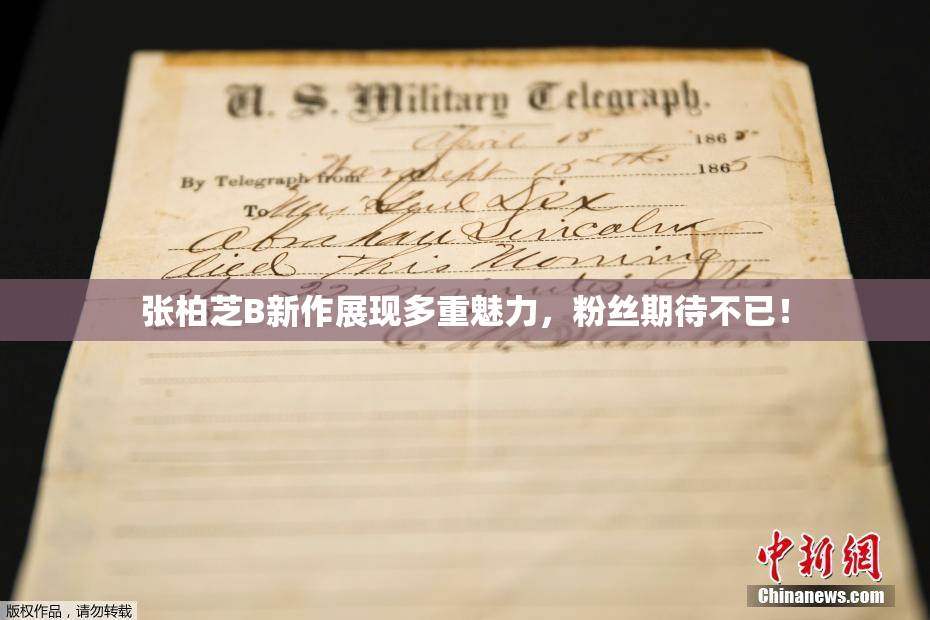 U. S. Military Telegraph.
April 15 1865
By Telegraph from War Dept 15th 1865
To Maj Genl Dix
Abraham Lincoln
died This Morning
at 22 minutes after
张柏芝B新作展现多重魅力，粉丝期待不已！
E. M. Stanton
中新网
Chinanews.com
版权作品，请勿转载